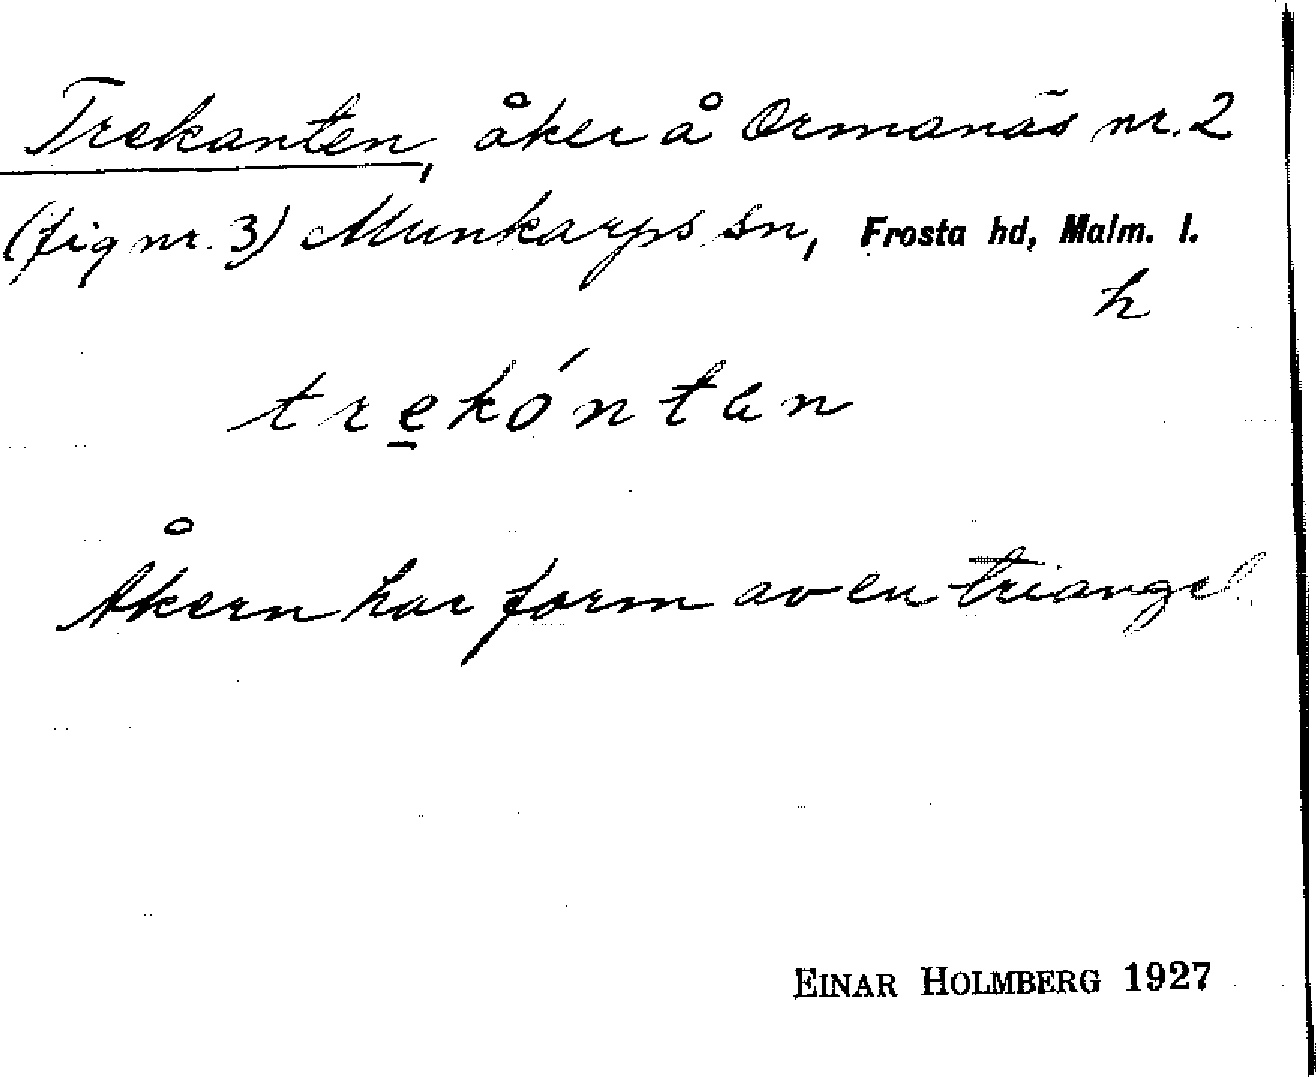 Trekanten, åker å Ormanäs nr. 2
(fig nr. 3) Munkarps sn, Frosta hd, Malm. l.
h
trekóntan
Åkern har form av en triangel.
EINAR HOLMBERG 1927